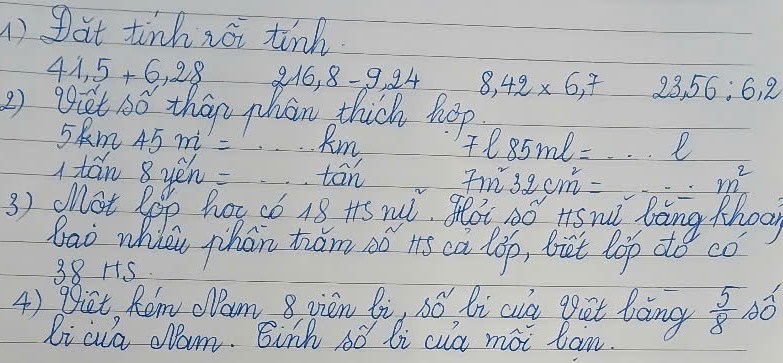 1) Đặt tính rồi tính.
41,5 + 6,28 216,8 - 9,24 8,42 x 6,7 23,56 : 6,2
2) Viết số thập phân thích hợp.
5km 45 m = .... km 7l 85ml = .... l
1 tấn 8 yến = .... tấn 7m² 32cm² = .... m²
3) Một lớp học có 18 HS nữ. Hỏi số HS nữ bằng khoảng
bao nhiêu phần trăm số HS cả lớp, biết lớp đó có
38 HS.
4) Việt kém Nam 8 viên bi, số bi của Việt bằng 5/8 số
bi của Nam. Tính số bi của mỗi bạn.